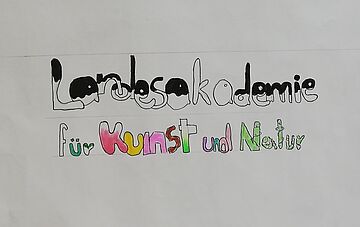 Landesakademie
für Kunst und Natur